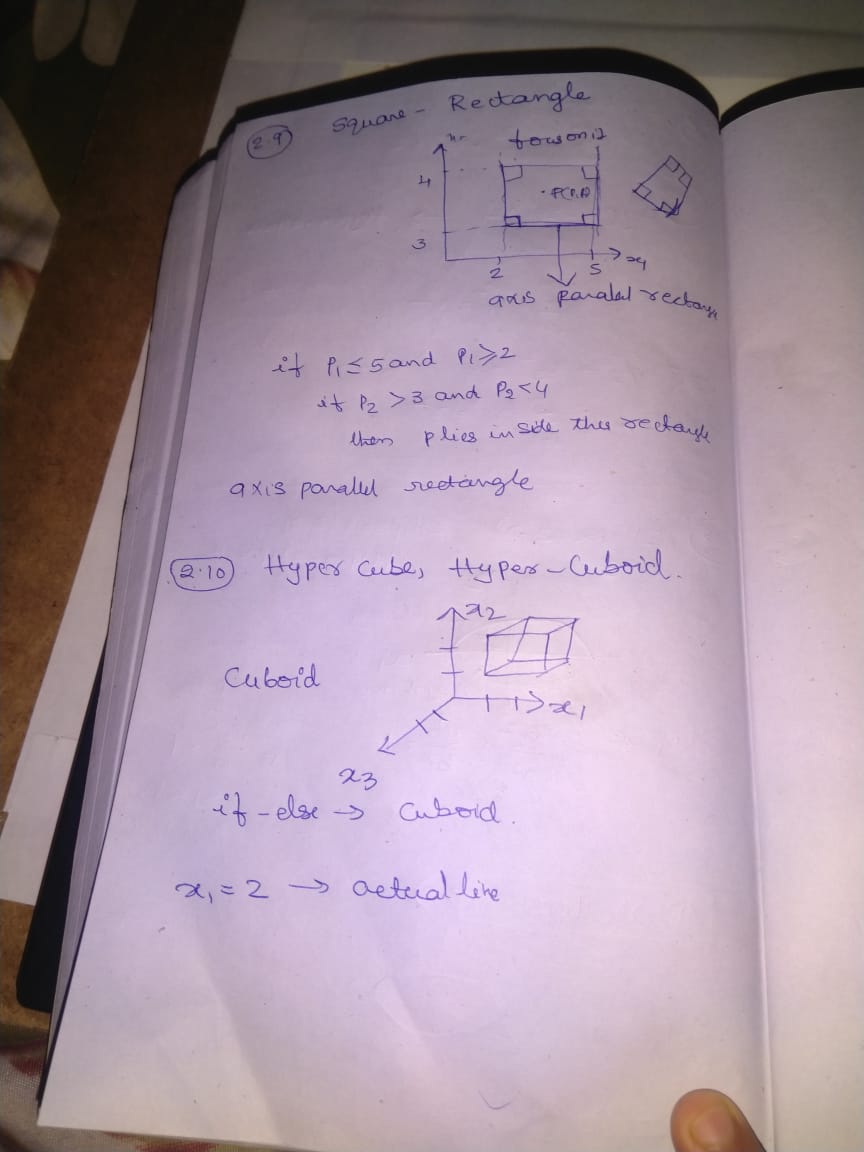 2.9 Square - Rectangle
4
P(P1,P2)
3
2
5
axis paralel rectangle
if P1 ≤ 5 and P1 ≥ 2
if P2 > 3 and P2 < 4
then p lies inside this rectangle
axis parallel rectangle
2.10 Hyper Cube, Hyper-Cuboid.
x2
Cuboid
x1
x3
if-else → Cuboid.
x1 = 2 → actual line